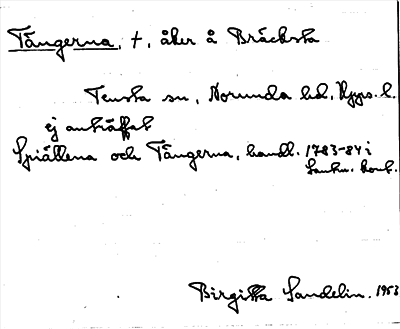 Tångerna, +, åker å Bräcksta
Tensta sn, Norunda hd, Upps. l.
ej anträffat
Spiällena och Tångerna, handl. 1783-84 i
Lantm. kont.
Birgitta Sandelin. 1953